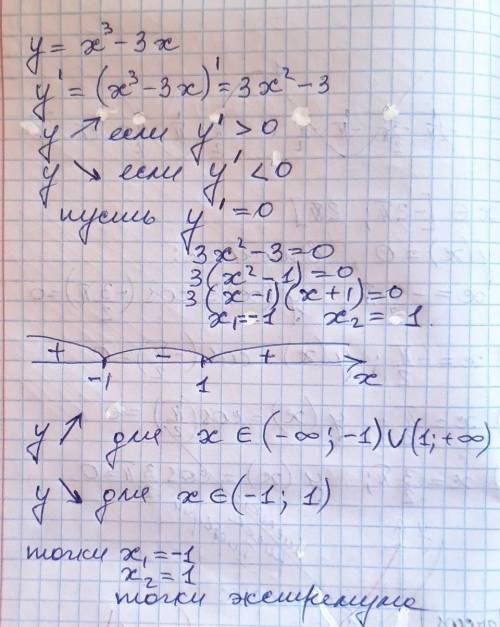 y = x³ - 3x
y' = (x³ - 3x)' = 3x² - 3
y ↗ если y' > 0
y ↘ если y' < 0
пусть y' = 0
3x² - 3 = 0
3(x² - 1) = 0
3(x - 1)(x + 1) = 0
x₁ = -1 x₂ = 1.
+ - +
-1 1 x
y ↗ для x ∈ (-∞; -1) ∪ (1; +∞)
y ↘ для x ∈ (-1; 1)
точки x₁ = -1
x₂ = 1
точки экстремума